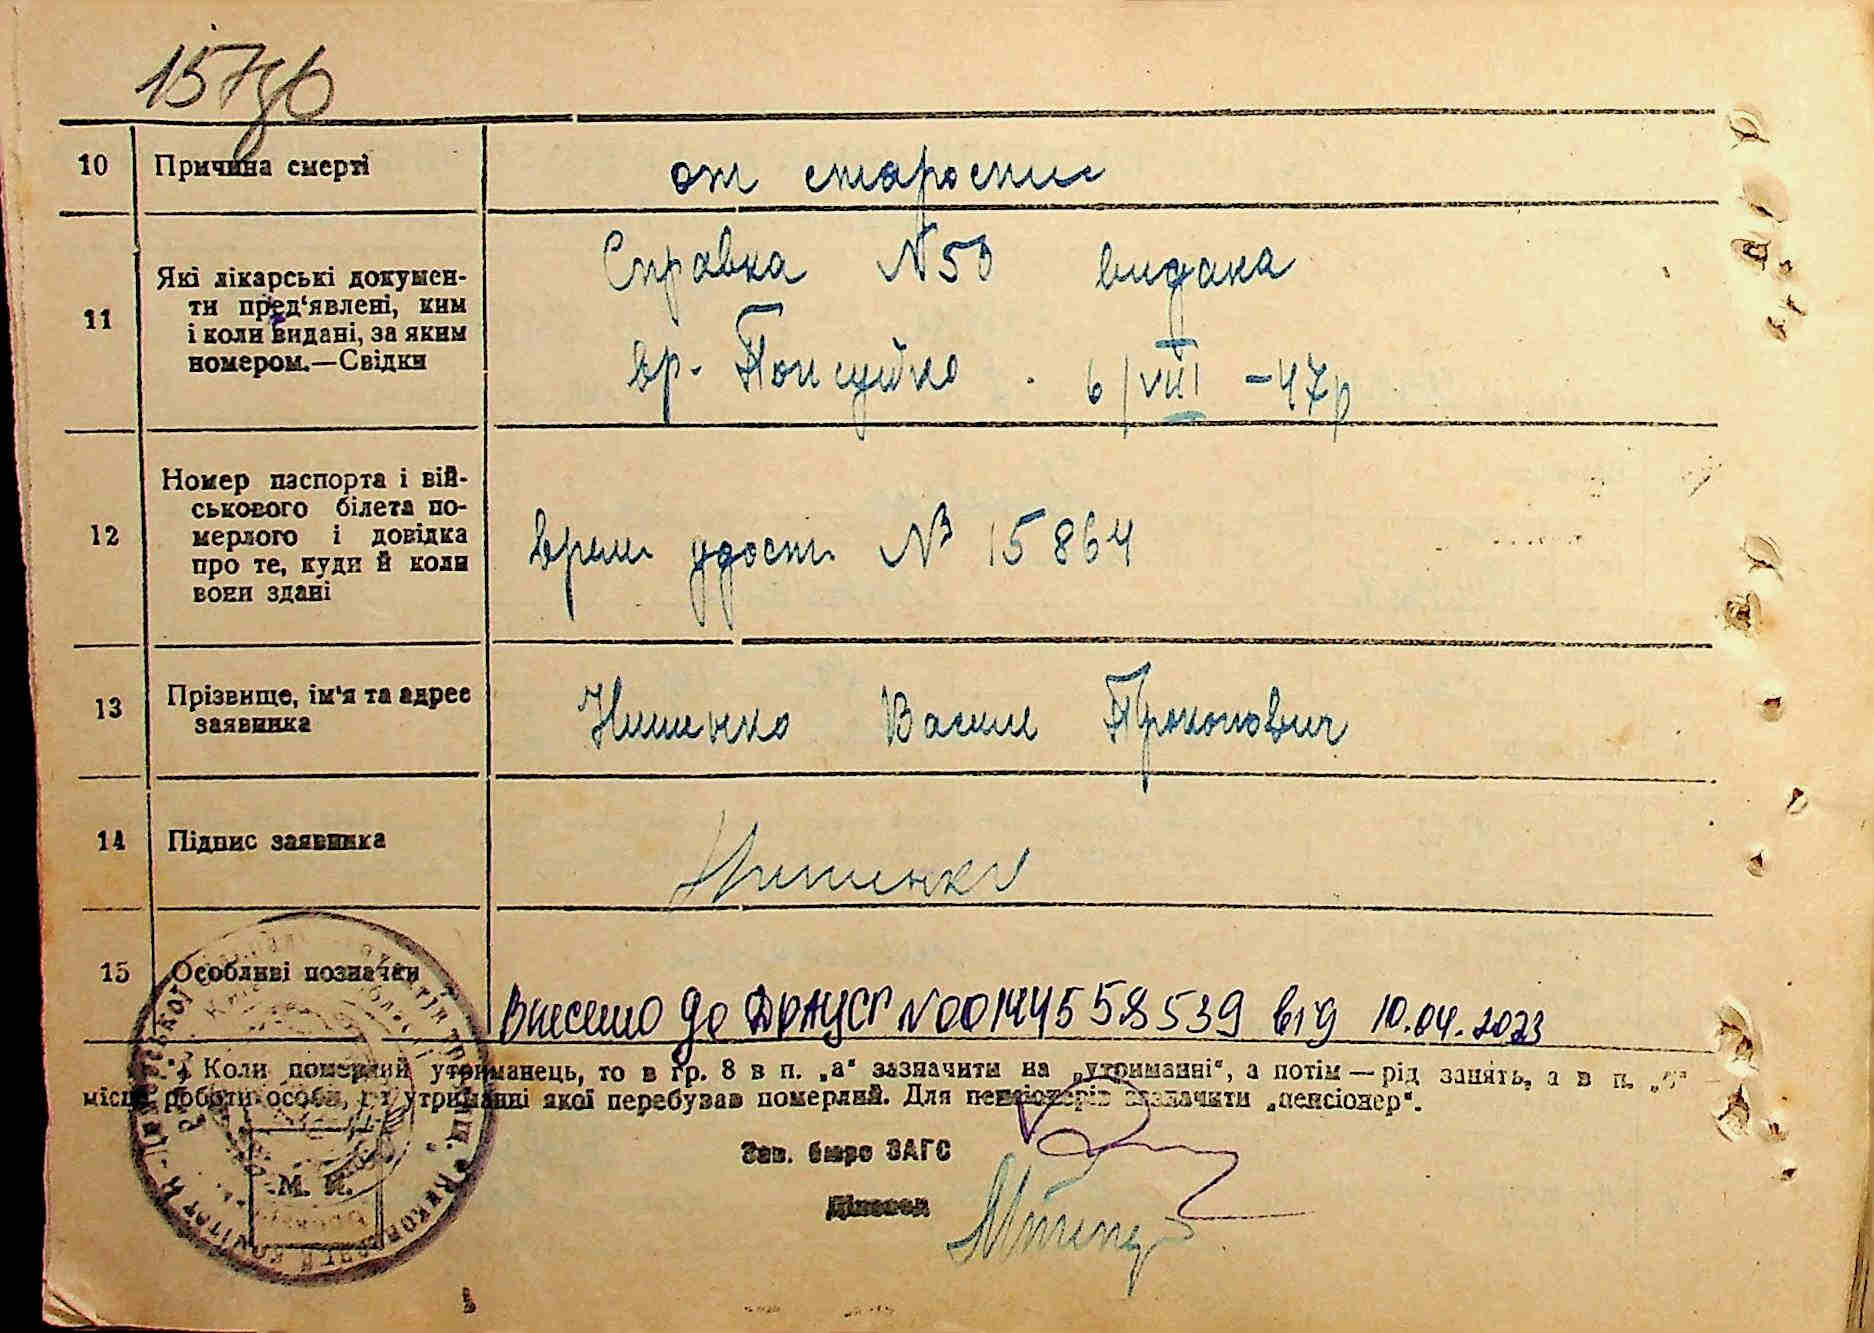 157зб
10 Причина смерті от старости
11 Які лікарські докумен-
ти пред'явлені, ким
і коли видані, за яким
номером.—Свідки
Справка N53 видана
вр-
6/VIII -47р
12 Номер паспорта і вій-
ськового білета по-
мерлого і довідка
про те, куди й коли
вони здані
врем удост № 15864
13 Прізвище, ім'я та адрес
заявника
Василь Прокопович
14 Підпис заявника
15 Особливі позначки
Внесено до ДРАЦСГ N00144558539 від 10.04.2023
*) Коли померлий утриманець, то в гр. 8 в п. „а" зазначити на „утриманні", а потім — рід занять, а в п. „б" —
місце роботи особи, на утриманні якої перебував померлий. Для пенсіонерів зазначити „пенсіонер".
Зав. бюро ЗАГС
Діловод
М. П.